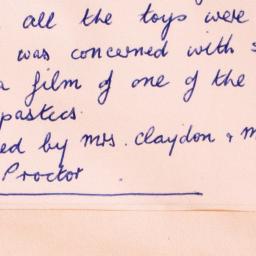 all the toys were
was concerned with s
a film of one of the
pastics.
ed by Mrs. Claydon + M
Proctor.